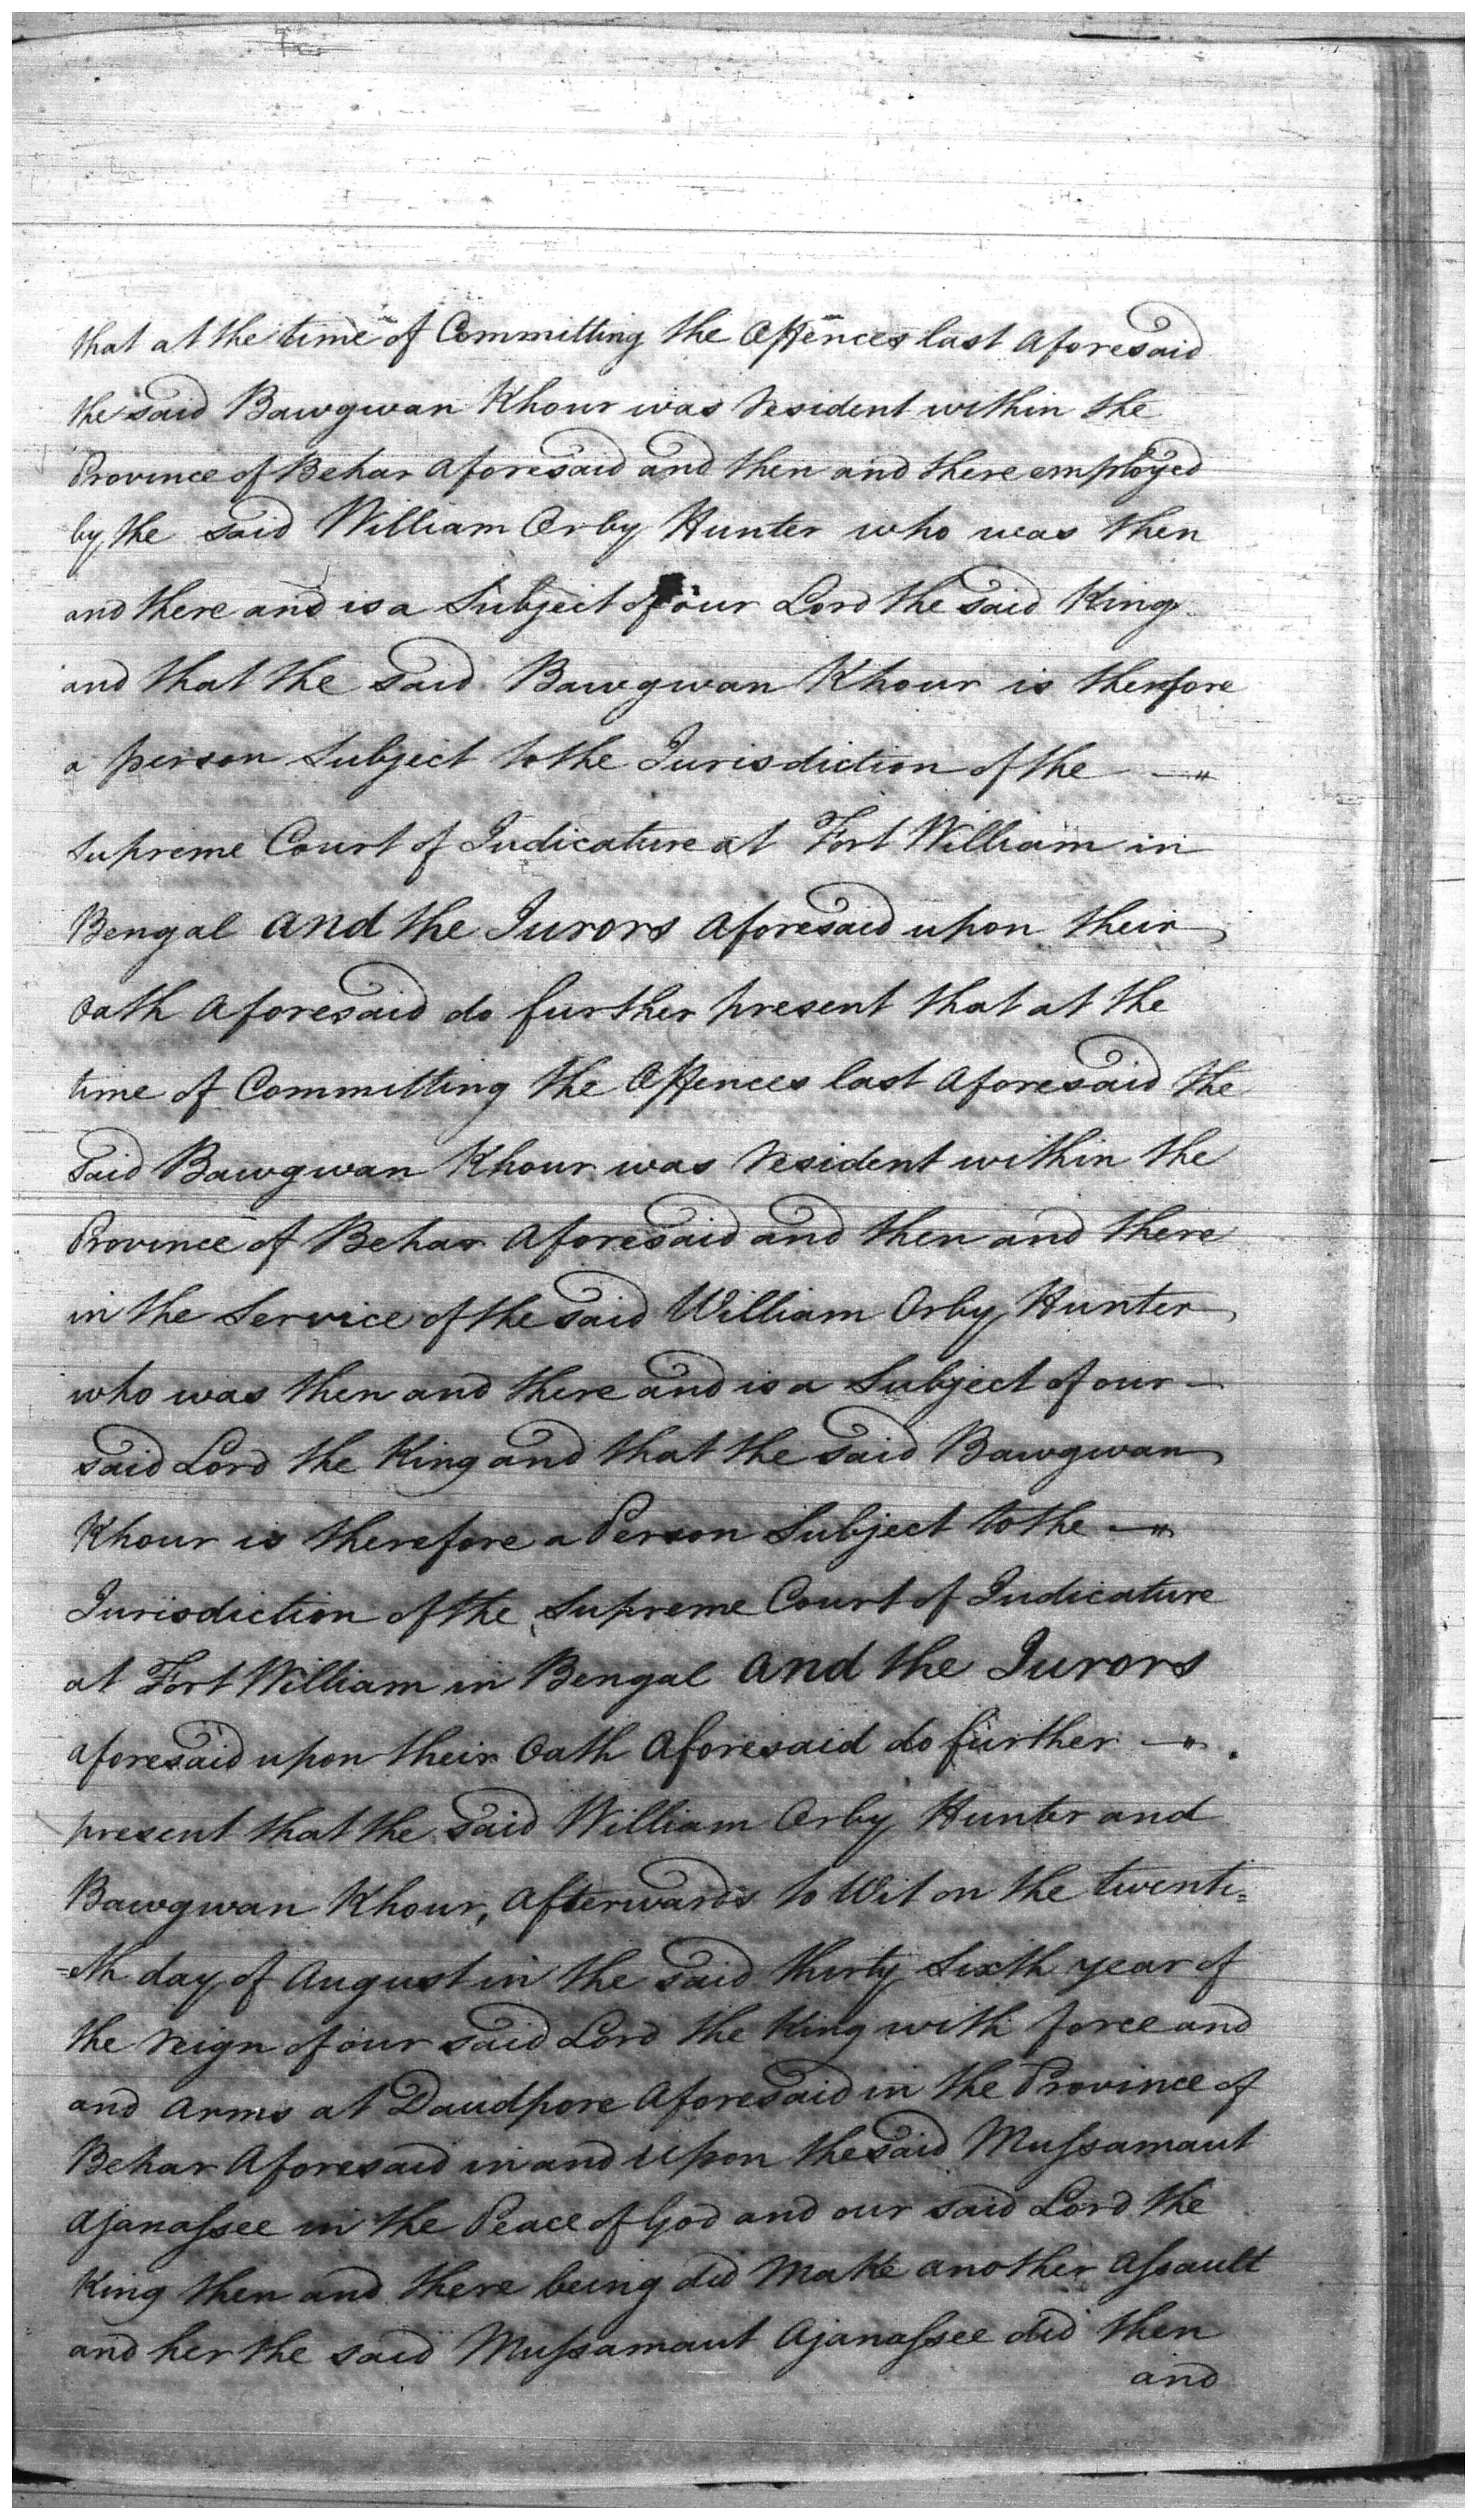 that at the time of Committing the Offences last Aforesaid
the said Bawgwan Khour was Resident within the
Province of Behar Aforesaid and then and there employed
by the said William Orby Hunter who was then
and there and is a Subject of our Lord the said King
and that the said Bawgwan Khour is therefore
a person Subject to the Jurisdiction of the —"
Supreme Court of Judicature at Fort William in
Bengal and the Jurors Aforesaid upon their
Oath Aforesaid do further present that at the
time of Committing the Offences last Aforesaid the
said Bawgwan Khour was Resident within the
Province of Behar Aforesaid and then and there
in the Service of the said William Orby Hunter
who was then and there and is a Subject of our —
said Lord the King and that the said Bawgwan
Khour is therefore a Person Subject to the —"
Jurisdiction of the Supreme Court of Judicature
at Fort William in Bengal and the Jurors
aforesaid upon their Oath Aforesaid do further —"
present that the said William Orby Hunter and
Bawgwan Khour, Afterwards to Wit on the twenti=
=eth day of August in the said thirty Sixth year of
the Reign of our said Lord the King with force and
and Arms at Daudpore Aforesaid in the Province of
Behar Aforesaid in and upon the said Mussamaut
Ajanassee in the Peace of God and our said Lord the
King then and there being did Make another Assault
and her the said Mussamaut Ajanassee did then
and